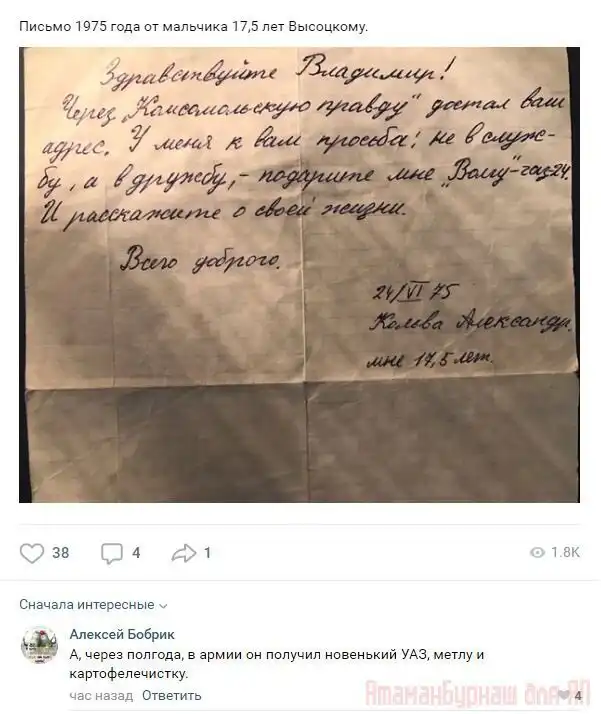 Письмо 1975 года от мальчика 17,5 лет Высоцкому.
Здравствуйте Владимир!
Через „Комсомольскую правду" достал ваш
адрес. У меня к вам просьба: не в служ-
бу, а в дружбу, - подарите мне „Волгу"-газ-24.
И расскажите о своей жизни.
Всего доброго.
24/VI 75
Колева Александр.
мне 17,5 лет.
38
4
1
1.8K
Сначала интересные
Алексей Бобрик
А, через полгода, в армии он получил новенький УАЗ, метлу и
картофелечистку.
час назад Ответить
4
АтаманБурнаш для ЯП